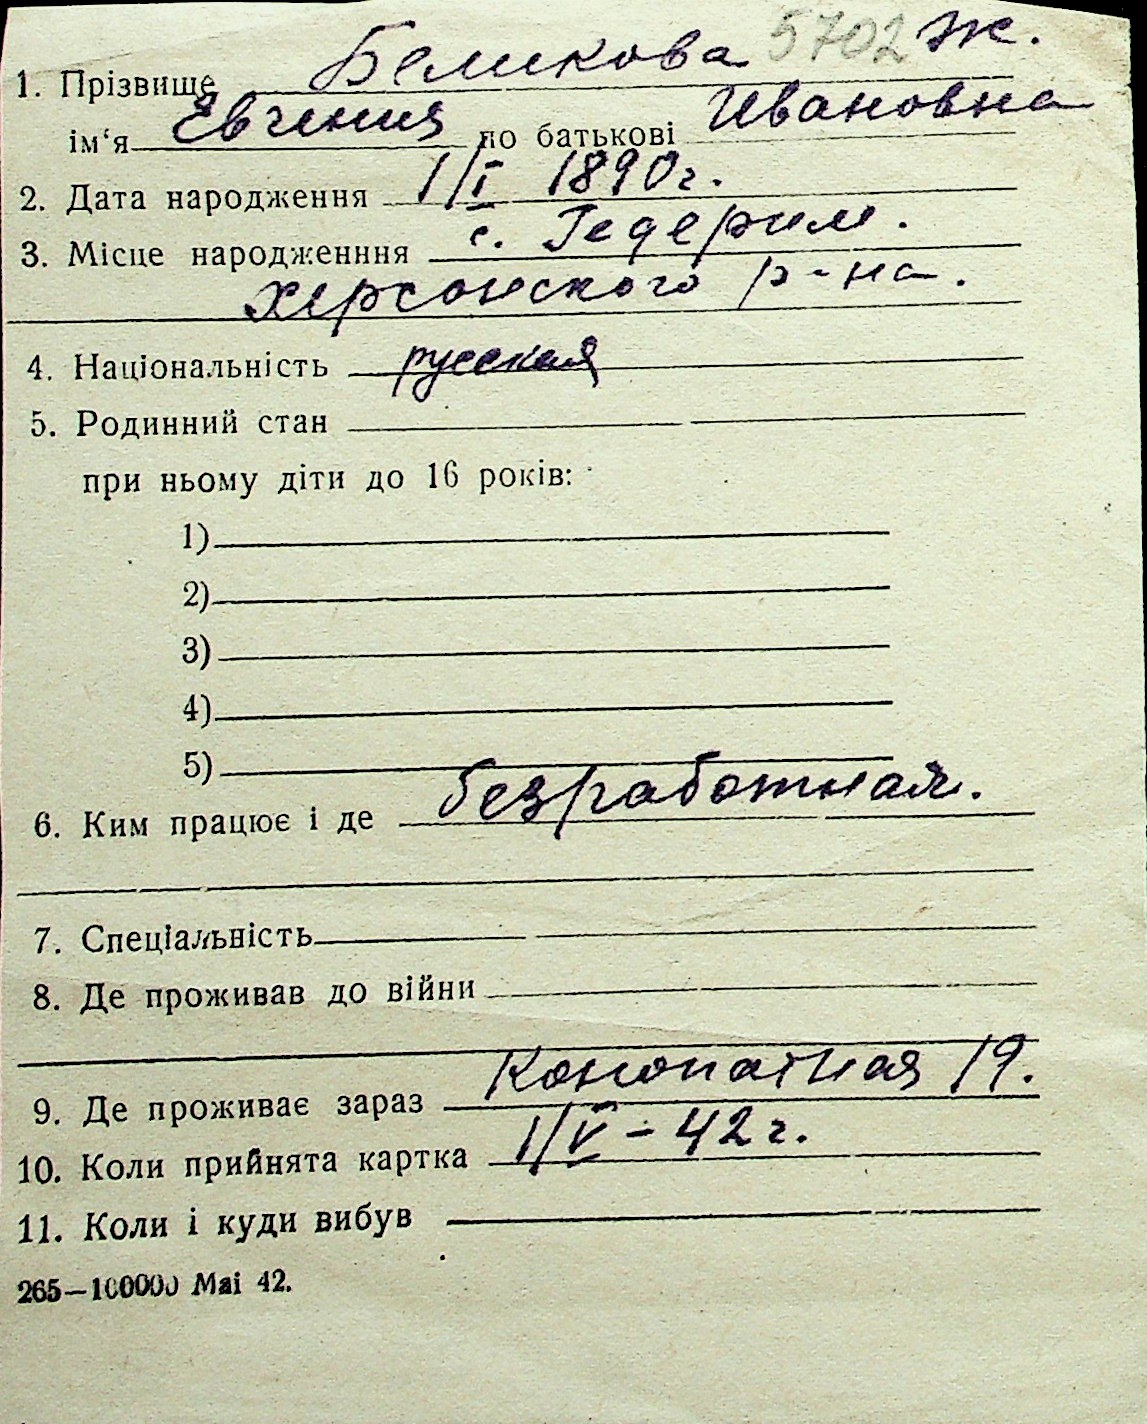 5702 ж.
1. Прізвище Беликова
ім‘я Евгения по батькові Ивановна
2. Дата народження 1/I 1890г.
3. Місце народженння с. Гедерим.
Херсонского р-на.
4. Національність русская
5. Родинний стан
при ньому діти до 16 років:
1)
2)
3)
4)
5)
6. Ким працює і де безработная.
7. Спеціальність
8. Де проживав до війни
9. Де проживає зараз Конопатная 19.
10. Коли прийнята картка 1/V-42г.
11. Коли і куди вибув
265—100000 Mai 42.